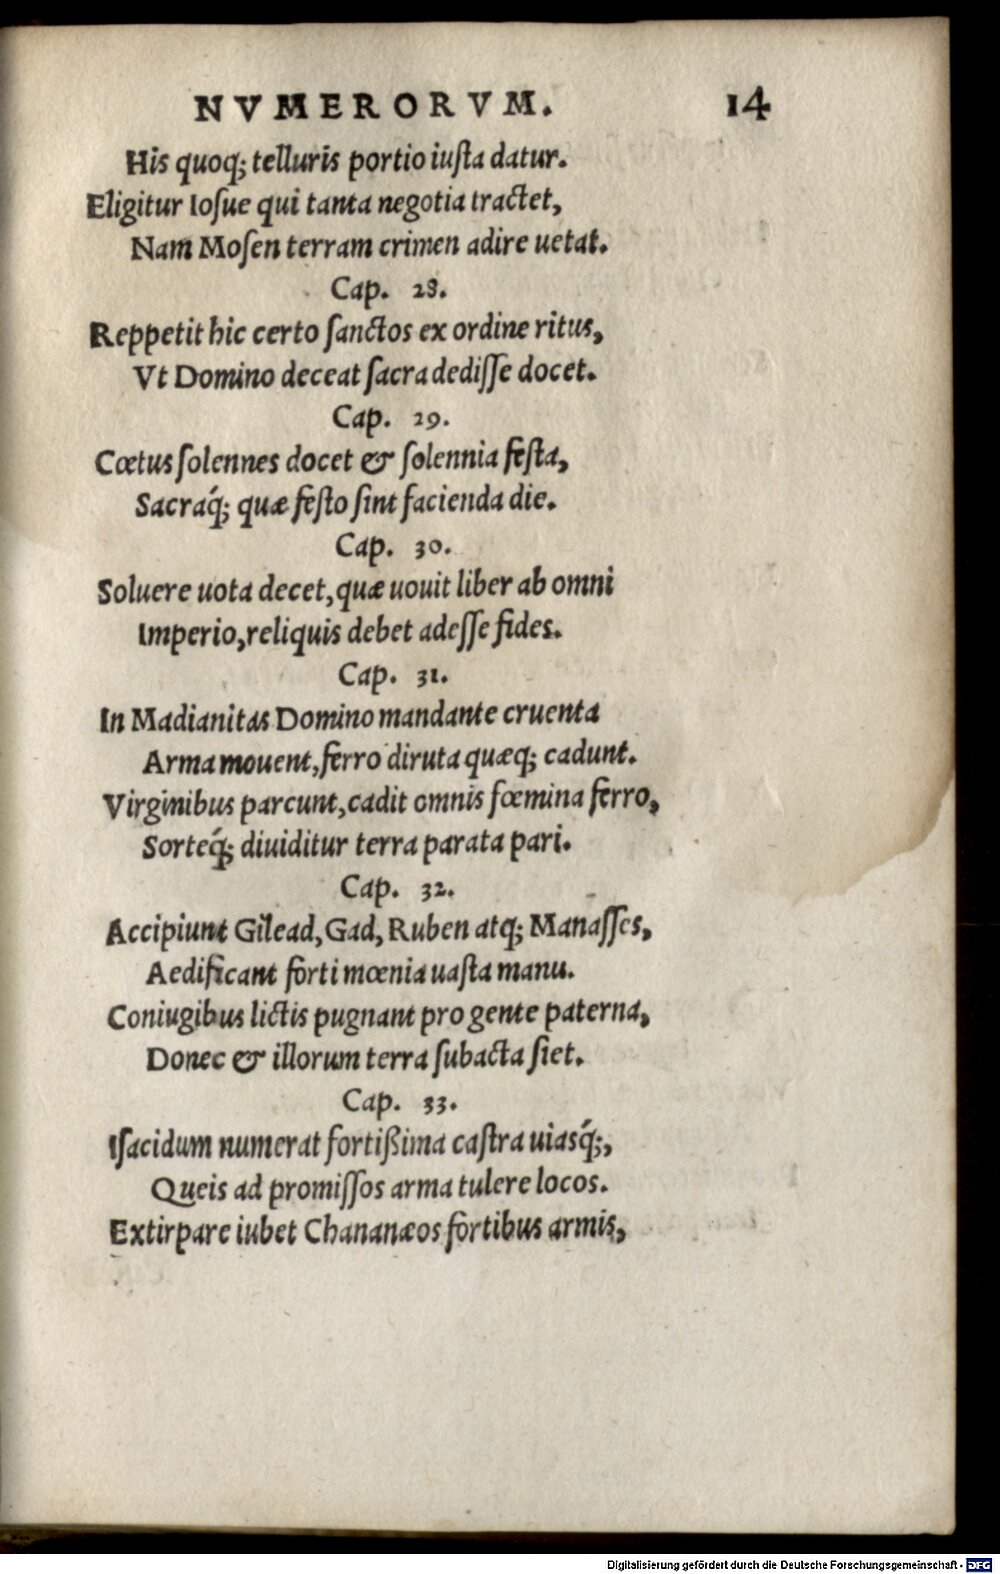 NVMERORVM. 14
His quoq; telluris portio iuſta datur.
Eligitur Ioſue qui tanta negotia tractet,
Nam Moſen terram crimen adire uetat.
Cap. 28.
Reppetit hic certo ſanctos ex ordine ritus,
Vt Domino deceat ſacra dediſſe docet.
Cap. 29.
Cœtus ſolennes docet & ſolennia feſta,
Sacraq́; quæ feſto ſint facienda die.
Cap. 30.
Soluere uota decet, quæ uouit liber ab omni
Imperio, reliquis debet adeſſe fides.
Cap. 31.
In Madianitas Domino mandante cruenta
Arma mouent, ferro diruta quæq; cadunt.
Virginibus parcunt, cadit omnis fœmina ferro,
Sorteq́; diuiditur terra parata pari.
Cap. 32.
Accipiunt Gilead, Gad, Ruben atq; Manaſſes,
Aedificant forti mœnia uaſta manu.
Coniugibus lictis pugnant pro gente paterna,
Donec & illorum terra ſubacta fiet.
Cap. 33.
Iſacidum numerat fortißima caſtra uiasq́;,
Queis ad promiſſos arma tulere locos.
Extirpare iubet Chananæos fortibus armis,
Digitalisierung gefördert durch die Deutsche Forschungsgemeinschaft - DFG